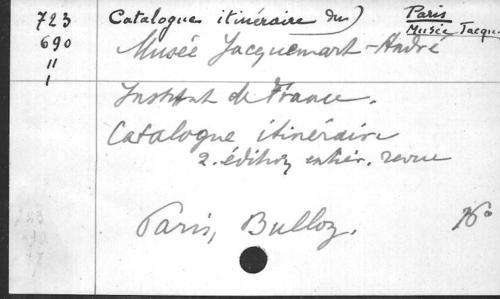 723 Catalogue itinéraire du Paris
690 Musée Jacquemart-André Musée Jacqu
"
1
Institut de France.
Catalogue itinéraire
2. édition entièr. revue
Paris, Bulloz.